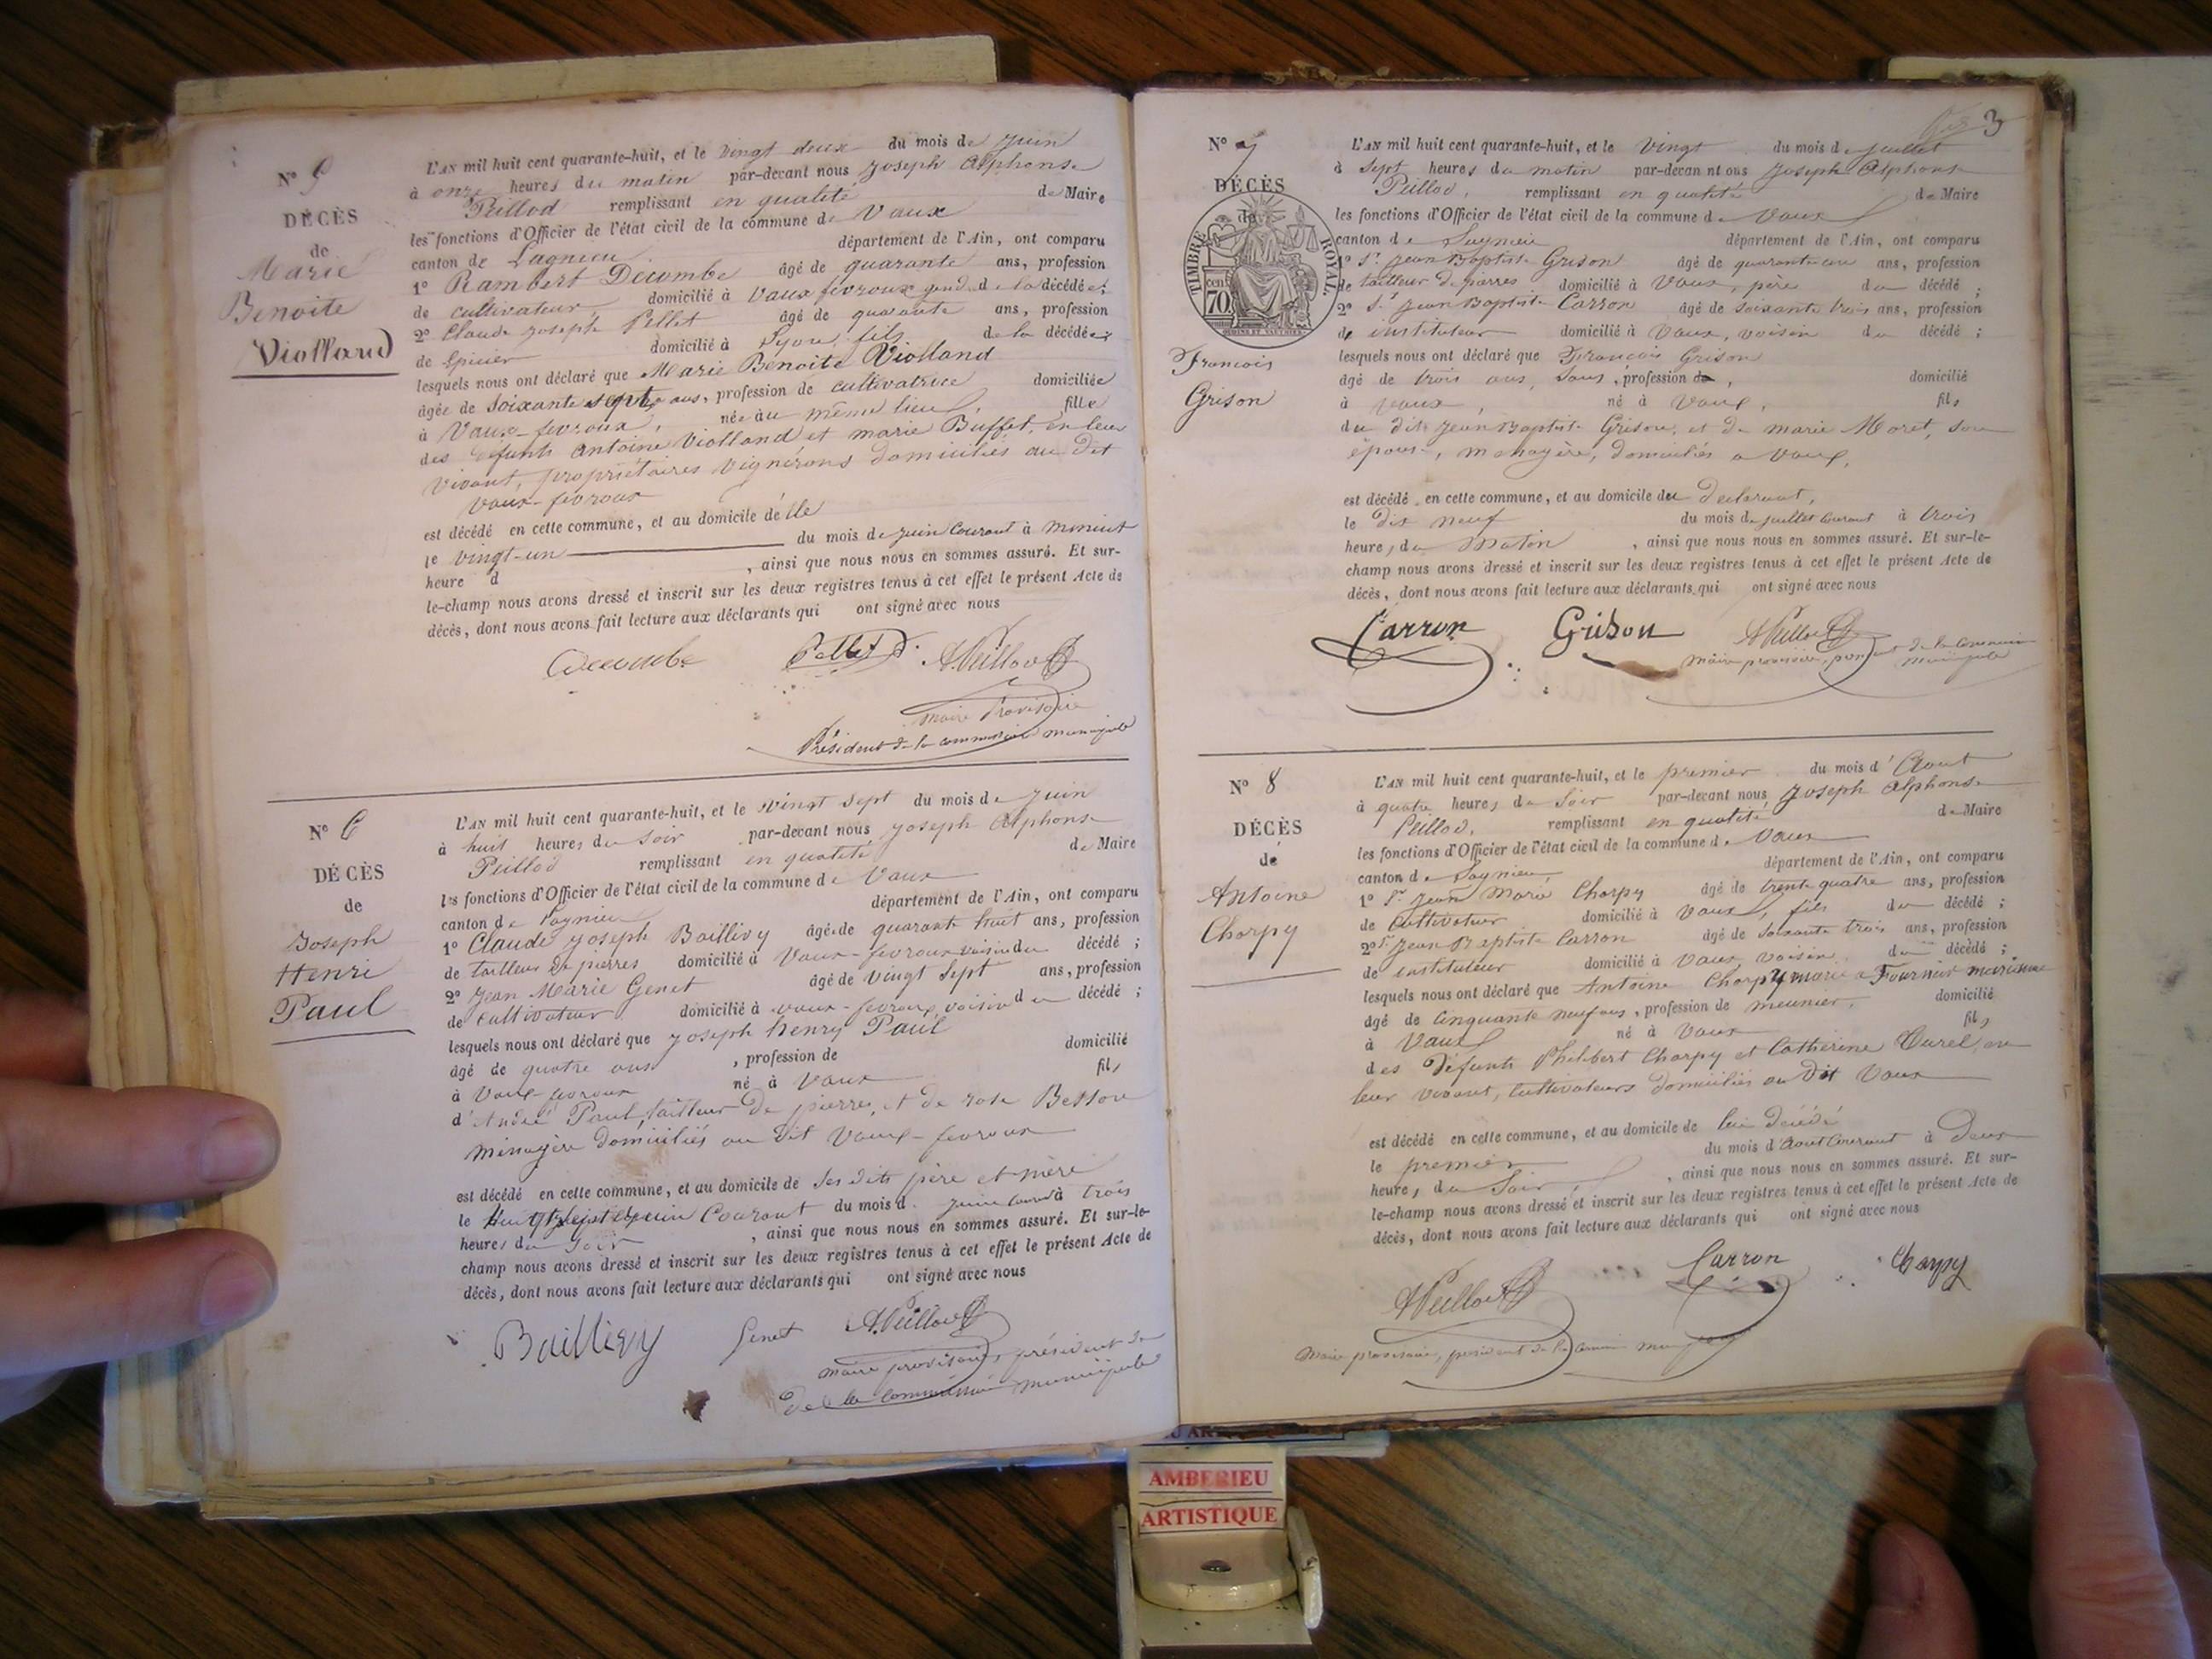 N° 5
DÉCÈS
de
Marie
Benoite
Violland
L'AN mil huit cent quarante-huit, et le vingt deux du mois de Juin
à onze heures du matin par-devant nous Joseph Alphonse
Peillod remplissant en qualité de Maire
les fonctions d'Officier de l'état civil de la commune de Vaux
canton de Lagnieu département de l'Ain, ont comparu
1° Rambert Decombe âgé de quarante ans, profession
de cultivateur domicilié à Vaux fevroux gendre de la décédée;
2° Claude Joseph Pellet âgé de quarante ans, profession
de Epicier domicilié à Lyon, fils de la décédée;
lesquels nous ont déclaré que Marie Benoite Violland
âgée de soixante sept ans, profession de cultivatrice domiciliée
à Vaux-fevroux, née au même lieu, fille
des défunts Antoine Violland et marie Buffet, en leur
vivant, propriétaires vignerons domiciliés au dit
Vaux-fevroux
est décédé en cette commune, et au domicile d'elle
le vingt-un du mois de juin Courant à minuit
heure d , ainsi que nous nous en sommes assuré. Et sur-
le-champ nous avons dressé et inscrit sur les deux registres tenus à cet effet le présent Acte de
décès, dont nous avons fait lecture aux déclarants qui ont signé avec nous
Decombe Pellet A. Peillod
maire Provisoire
Président de la commission municipale
N° 6
DÉCÈS
de
Joseph
Henri
Paul
L'AN mil huit cent quarante-huit, et le vingt sept du mois de Juin
à huit heures du soir par-devant nous Joseph Alphonse
Peillod remplissant en qualité de Maire
les fonctions d'Officier de l'état civil de la commune de Vaux
canton de Lagnieu département de l'Ain, ont comparu
1° Claude Joseph Baillivy âgé de quarante huit ans, profession
de tailleur de pierres domicilié à Vaux-fevroux voisin du décédé;
2° Jean Marie Genet âgé de vingt sept ans, profession
de cultivateur domicilié à vaux-fevroux, voisin du décédé;
lesquels nous ont déclaré que Joseph henry Paul
âgé de quatre ans , profession de domicilié
à Vaux-fevroux né à Vaux fils
d'André Paul, tailleur de pierres, et de rose Besson
ménagère domiciliés au dit Vaux-fevroux
est décédé en cette commune, et au domicile de ses dits père et mère
le Courant du mois d. Juin Courant à trois
heures du soir , ainsi que nous nous en sommes assuré. Et sur-le-
champ nous avons dressé et inscrit sur les deux registres tenus à cet effet le présent Acte de
décès, dont nous avons fait lecture aux déclarants qui ont signé avec nous
Baillivy Genet A. Peillod
maire provisoire, président de
de la commission municipale
3
N° 7
DÉCÈS
de
TIMBRE ROYAL.
70 cent
François
Grison
L'AN mil huit cent quarante-huit, et le vingt du mois de juillet
à sept heures du matin par-devant nous Joseph Alphonse
Peillod, remplissant en qualité de Maire
les fonctions d'Officier de l'état civil de la commune de Vaux
canton de Lagnieu département de l'Ain, ont comparu
1° Sr. Jean Baptiste Grison âgé de quarante ans, profession
de tailleur de pierres domicilié à Vaux, père du décédé;
2° Sr. Jean Baptiste Carron âgé de soixante trois ans, profession
de instituteur domicilié à Vaux, voisin du décédé;
lesquels nous ont déclaré que François Grison
âgé de trois ans, sans profession de, domicilié
à vaux, né à Vaux, fils
du dit Jean Baptiste Grison, et de marie Moret, son
épouse, ménagère, domiciliés a Vaux,
est décédé en cette commune, et au domicile du declarant,
le dix neuf du mois de juillet courant à trois
heures du Matin , ainsi que nous nous en sommes assuré. Et sur-le-
champ nous avons dressé et inscrit sur les deux registres tenus à cet effet le présent Acte de
décès, dont nous avons fait lecture aux déclarants qui ont signé avec nous
Carron Grison A Peillod
maire provisoire, président de la Commission
municipale
N° 8
DÉCÈS
de
Antoine
Charpy
L'AN mil huit cent quarante-huit, et le premier du mois d'Aout
à quatre heures du Soir par-devant nous Joseph Alphonse
Peillod, remplissant en qualité de Maire
les fonctions d'Officier de l'état civil de la commune de Vaux
canton de Lagnieu, département de l'Ain, ont comparu
1° Sr. Jean Marie Charpy âgé de trente quatre ans, profession
de Cultivateur domicilié à Vaux, fils du décédé;
2° Sr. Jean Baptiste Carron âgé de soixante trois ans, profession
de instituteur domicilié à Vaux, voisin du décédé;
lesquels nous ont déclaré que Antoine Charpy marié a Fournier
âgé de Cinquante neuf ans, profession de meunier, domicilié
à Vaux né à Vaux fils
des défunts Philibert Charpy et Catherine Curel, en
leur vivant, cultivateurs domiciliés au Dit Vaux
est décédé en cette commune, et au domicile de lui décédé
le premier du mois d'Aout Courant à Deux
heures du Soir, , ainsi que nous nous en sommes assuré. Et sur-
le-champ nous avons dressé et inscrit sur les deux registres tenus à cet effet le présent Acte de
décès, dont nous avons fait lecture aux déclarants qui ont signé avec nous
A Peillod Carron Charpy
Maire provisoire, président de la Comm municipale
AMBERIEU
ARTISTIQUE